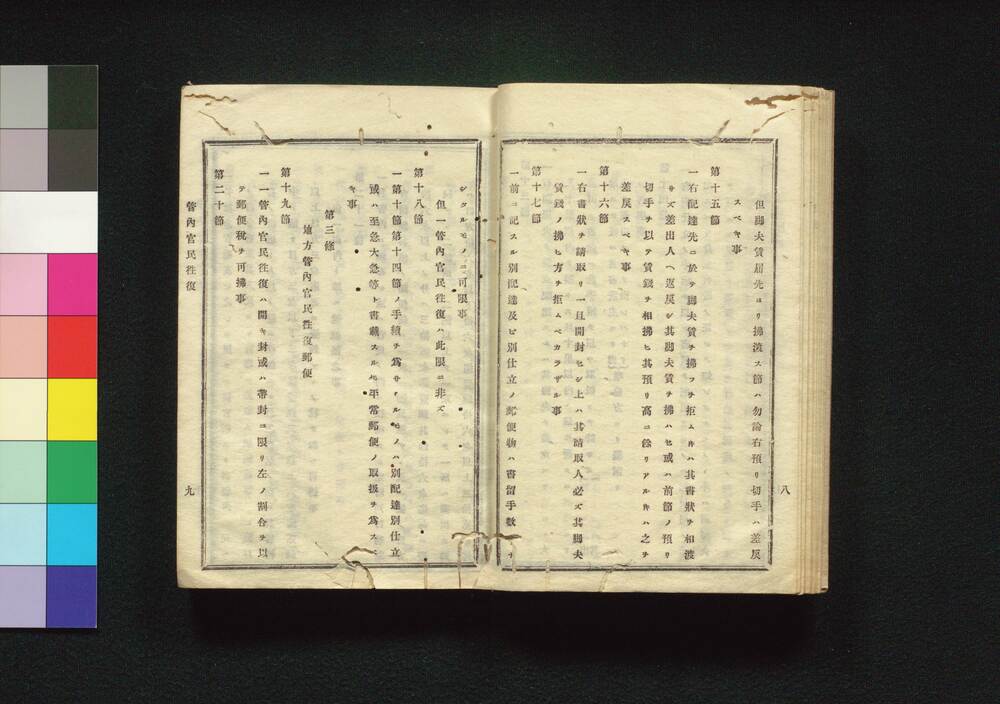 但脚夫賃届先ヨリ拂渡ス節ハ勿論右預リ切手ハ差戻
スベキ事
第十五節
一右配達先ニ於テ脚夫賃ヲ拂フヲ拒ムトキハ其書狀ヲ相渡
サズ差出人ヘ返戻シ其脚夫賃ヲ拂ハセ或ハ前節ノ預リ
切手ヲ以テ賃錢ヲ相拂ヒ其預リ高ニ餘リアルトキハ之ヲ
差戻スベキ事
第十六節
一右書狀ヲ請取リ一旦開封セシ上ハ其請取人必ズ其脚夫
賃錢ノ拂ヒ方ヲ拒ムベカラザル事
第十七節
一前ニ記スル別配達及ビ別仕立ノ郵便物ハ書留手數
八
シタルモノニ可限事
但一管內官民往復ハ此限ニ非ズ
第十八節
一第十節第十四節ノ手續ヲ爲サヾルモノハ別配達別仕立
或ハ至急大急等ト書載スルモ平常郵便ノ取扱ヲ爲スベ
キ事
第三條
地方管內官民往復郵便
第十九節
一一管內官民往復ハ開キ封或ハ帶封ニ限リ左ノ割合ヲ以
テ郵便稅ヲ可拂事
第二十節
管內官民往復
九